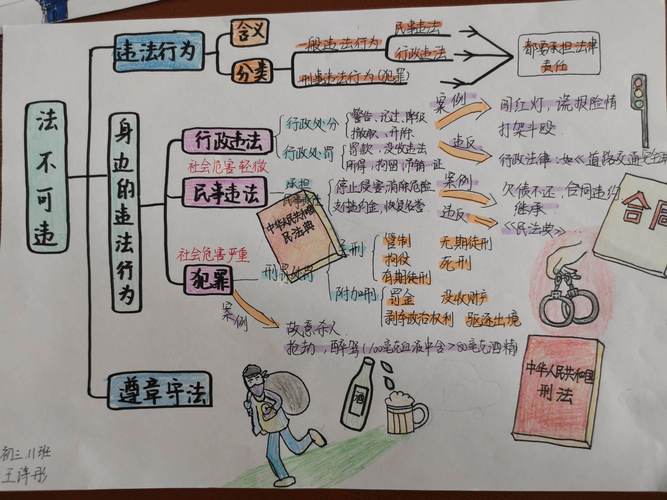 法不可违
违法行为
含义
分类
一般违法行为
民事违法
行政违法
刑事违法行为(犯罪)
都要承担法律
责任
身边的违法行为
行政违法
社会危害轻微
行政处分
警告、记过、降级
撤职、开除
行政处罚
罚款、没收违法
所得、拘留、吊销证
案例
闯红灯,谎报险情
打架斗殴
违反
行政法律:如《道路交通安全
民事违法
承担
停止侵害、消除危险
支付违约金、恢复名誉
案例
欠债不还、合同违约
继承
违反
《民法典》
中华人民共和国
民法典
合同
社会危害严重
犯罪
刑罚处罚
主刑
管制
无期徒刑
拘役
死刑
有期徒刑
附加刑
罚金
没收财产
剥夺政治权利
驱逐出境
案例
故意杀人
抢劫,醉驾(100毫克血液中含>80毫克酒精)
遵章守法
酒
中华人民共和国
刑法
初三.11班